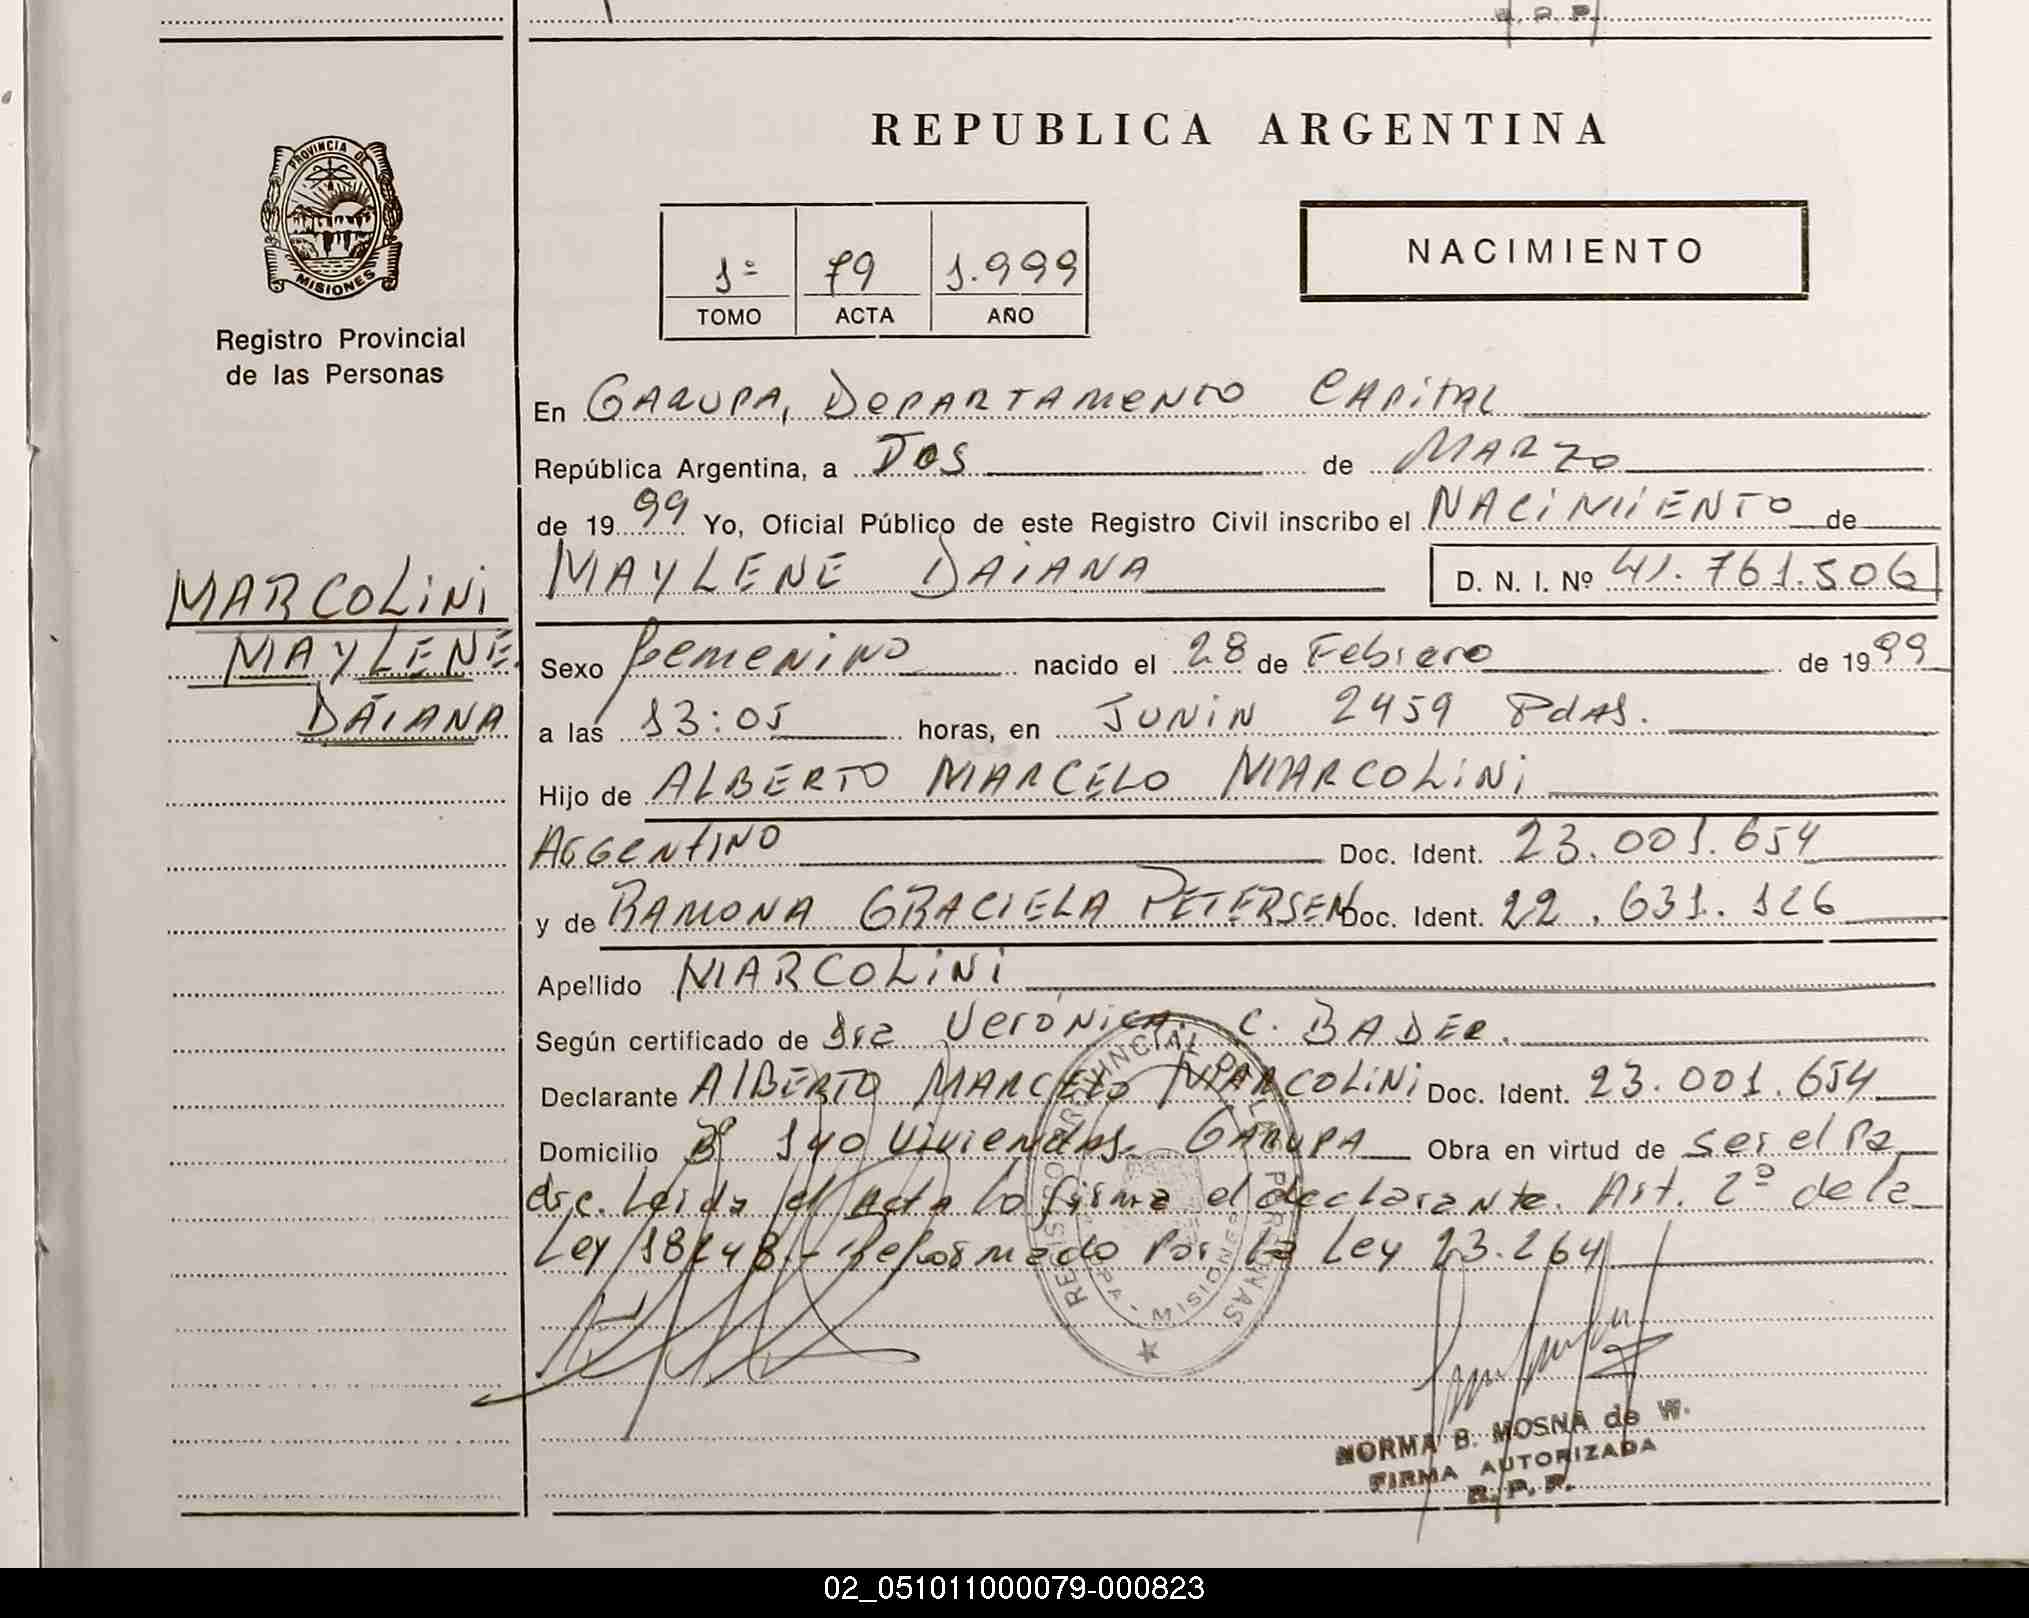 R. P. P.
PROVINCIA DE
MISIONES
Registro Provincial
de las Personas
REPUBLICA ARGENTINA
NACIMIENTO
1º 79 1.999
TOMO ACTA AÑO
En GARUPA, DEPARTAMENTO CAPITAL
República Argentina, a DOS de MARZO
de 1999 Yo, Oficial Público de este Registro Civil inscribo el NACIMIENTO de
MAYLENE DAIANA D. N. I. Nº 41.761.506
MARCOLINI
MAYLENE
DAIANA
Sexo femenino nacido el 28 de Febrero de 1999
a las 13:05 horas, en JUNIN 2459 Pdas.
Hijo de ALBERTO MARCELO MARCOLINI
Argentino Doc. Ident. 23.001.654
y de RAMONA GRACIELA PETERSEN Doc. Ident. 22.631.126
Apellido MARCOLINI
Según certificado de Dra Verónica C. BADER.
Declarante ALBERTO MARCELO MARCOLINI Doc. Ident. 23.001.654
Domicilio Bº 140 Viviendas. GARUPA Obra en virtud de ser el Pa
dre. Leida el Acta lo firma el declarante. Art. 2º de la
Ley 18248.- Reformado Por la Ley 23.264
REGISTRO PROVINCIAL DE LAS PERSONAS
MISIONES
NORMA B. MOSNA de W.
FIRMA AUTORIZADA
R. P. P.
02_051011000079-000823